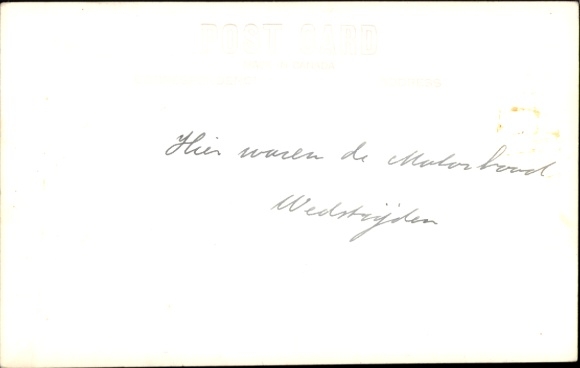 POST CARD
Hier waren de Motorboot
Wedstrijden